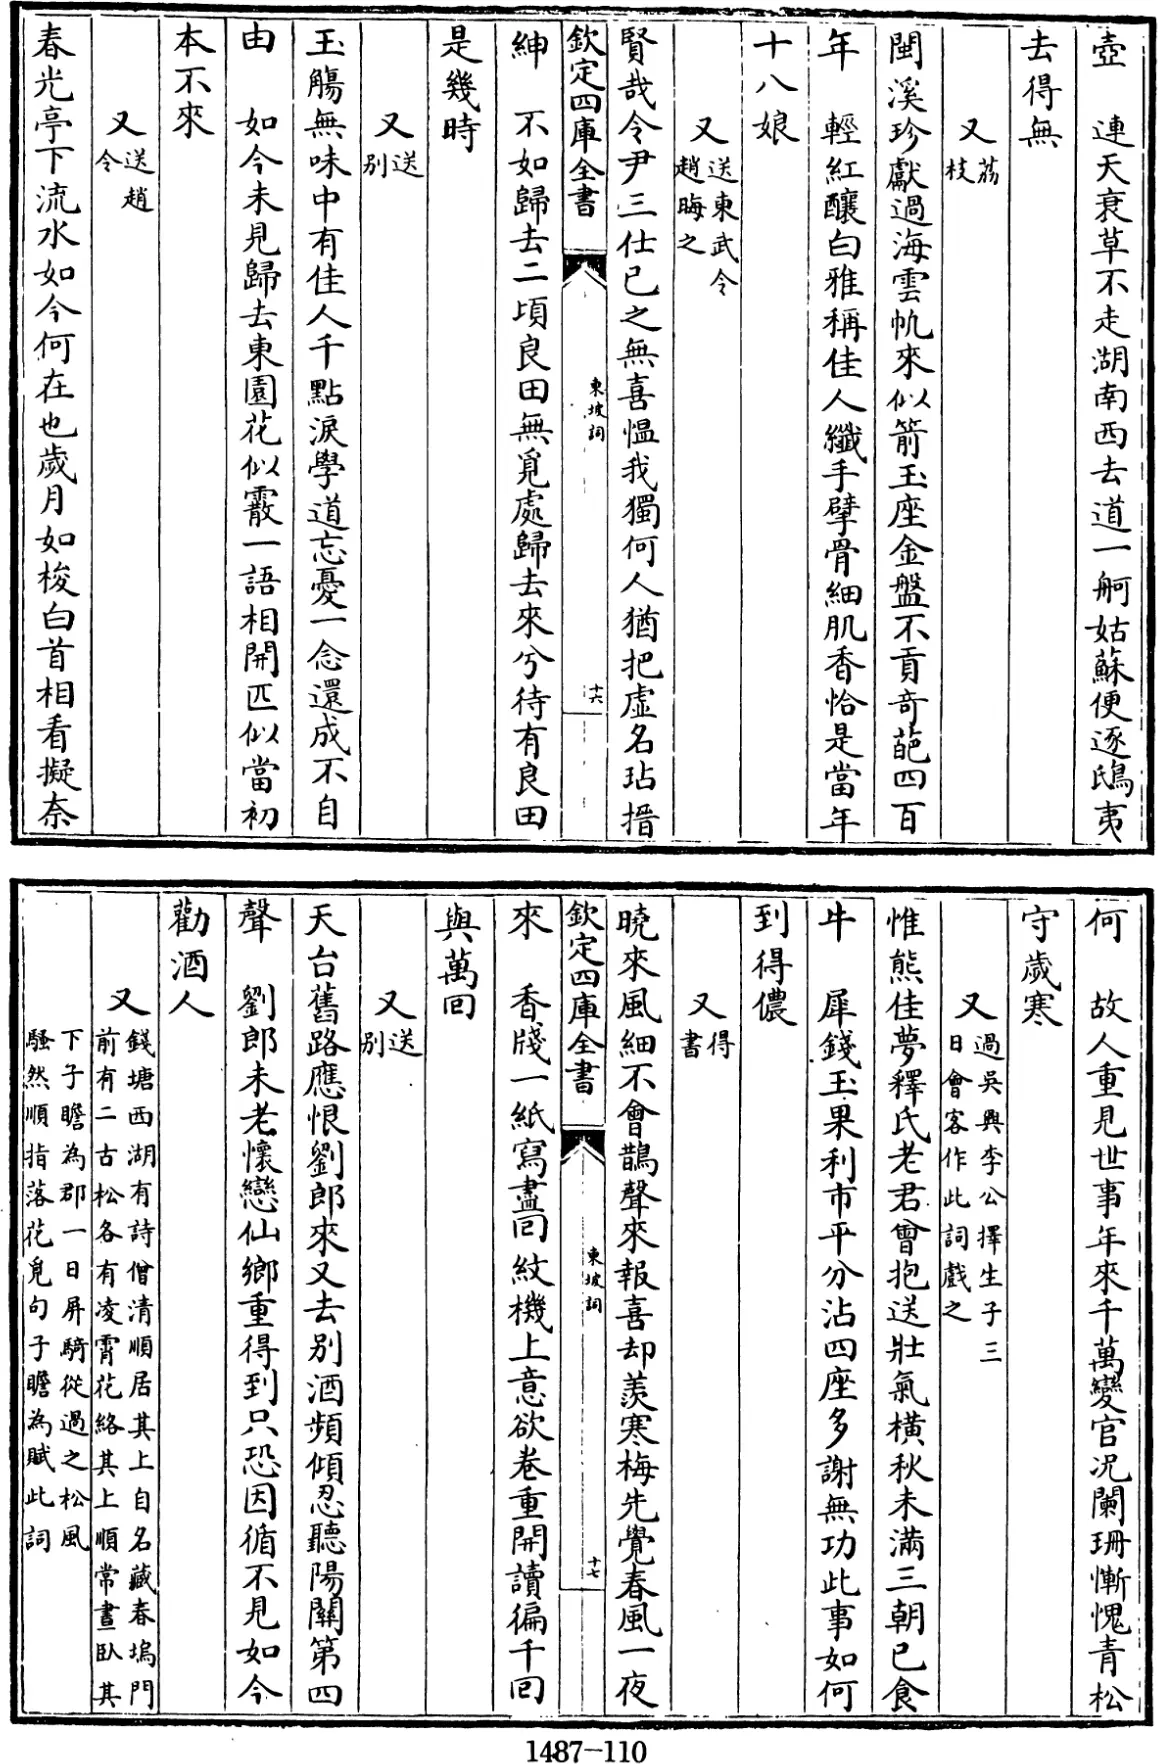 壺　連天衰草不走湖南西去道一舸姑蘇便逐鴟夷
去得無
又荔枝
閩溪珍獻過海雲帆來似箭玉座金盤不貢奇葩四百
年　輕紅釀白雅稱佳人纖手擘骨細肌香恰是當年
十八娘
又送東武令趙晦之
賢哉令尹三仕已之無喜愠我獨何人猶把虛名玷搢
欽定四庫全書
東坡詞
十六
紳　不如歸去二頃良田無覓處歸去來兮待有良田
是幾時
又送别
玉觴無味中有佳人千點淚學道忘憂一念還成不自
由　如今未見歸去東園花似霰一語相開匹似當初
本不來
又送趙令
春光亭下流水如今何在也歲月如梭白首相看擬奈
何　故人重見世事年來千萬變官况闌珊慚愧青松
守歲寒
又過吳興李公擇生子三日會客作此詞戲之
惟熊佳夢釋氏老君曾抱送壯氣橫秋未滿三朝已食
牛　犀錢玉果利市平分沾四座多謝無功此事如何
到得儂
又得書
曉來風細不會鵲聲來報喜却羨寒梅先覺春風一夜
欽定四庫全書
東坡詞
十七
來　香牋一紙寫盡回紋機上意欲卷重開讀徧千回
與萬回
又送别
天台舊路應恨劉郎來又去别酒頻傾忍聽陽關第四
聲　劉郎未老懷戀仙鄉重得到只恐因循不見如今
勸酒人
又錢塘西湖有詩僧清順居其上自名藏春塢門
前有二古松各有凌霄花絡其上順常晝臥其
下子瞻為郡一日屏騎從過之松風
騷然順指落花覓句子瞻為賦此詞
1487—110